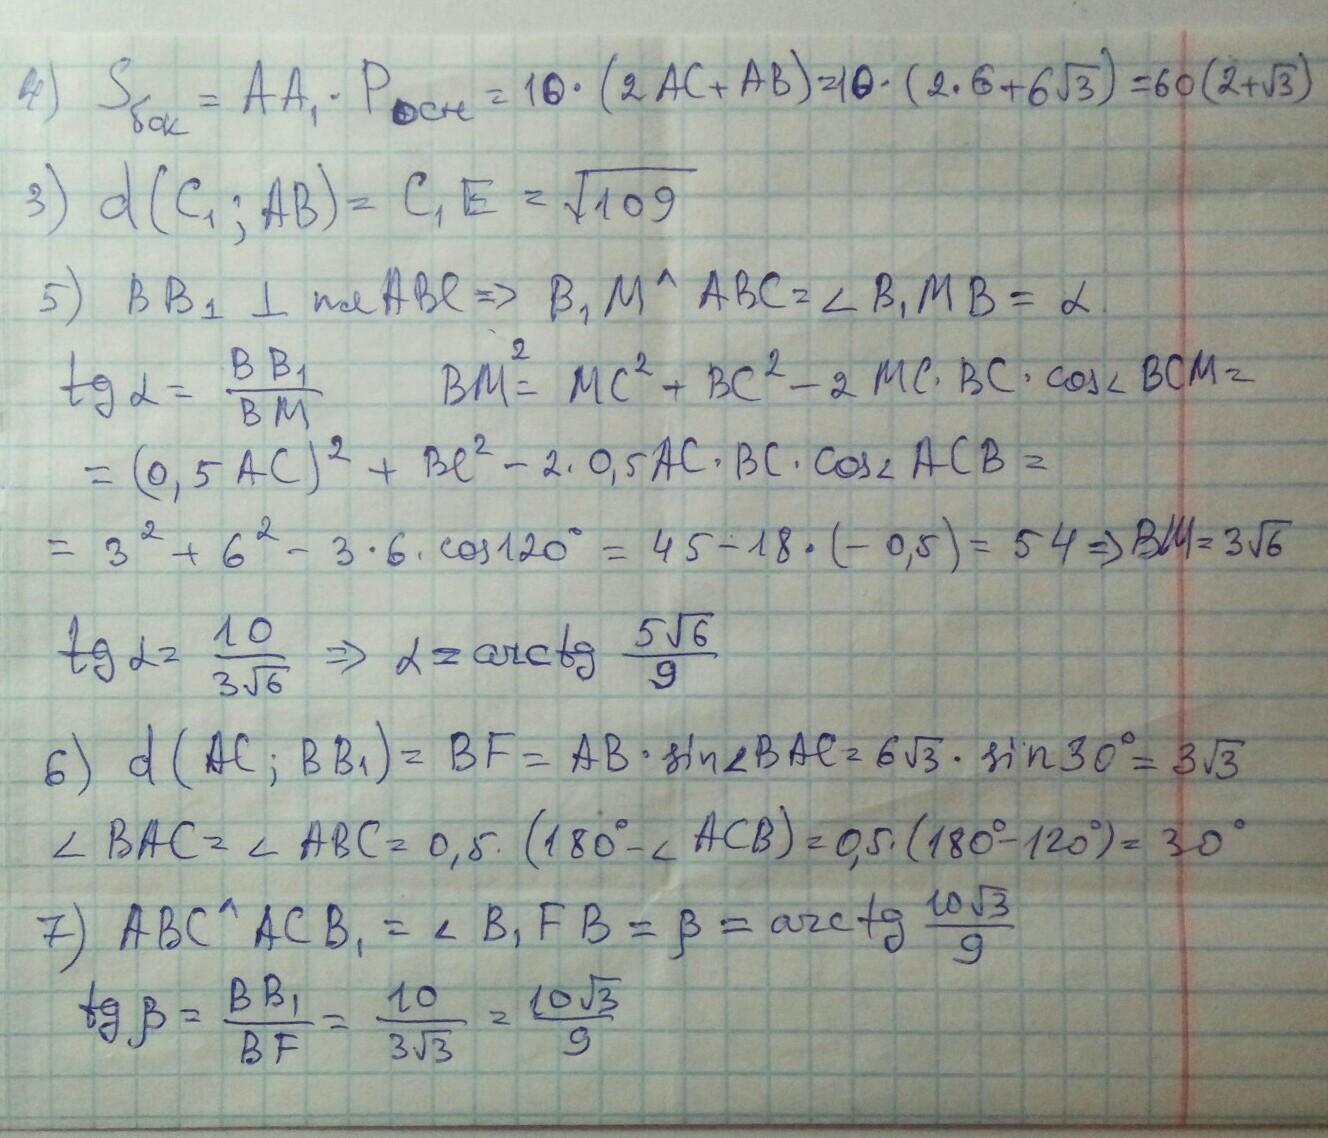 4) Sбок = AA₁ · Pосн = 10 · (2AC + AB) = 10 · (2·6 + 6√3) = 60(2+√3)
3) d(C₁; AB) = C₁E = √109
5) BB₁ ⊥ пл ABC ⇒ B₁M ^ ABC = ∠ B₁MB = α
tg α = BB₁/BM BM² = MC² + BC² − 2 MC · BC · cos∠ BCM =
= (0,5 AC)² + BC² − 2 · 0,5 AC · BC · cos∠ ACB =
= 3² + 6² − 3·6 · cos120° = 45 − 18 · (− 0,5) = 54 ⇒ BM = 3√6
tg α = 10/3√6 ⇒ α = arctg 5√6/9
6) d(AC; BB₁) = BF = AB · sin∠BAC = 6√3 · sin30° = 3√3
∠ BAC = ∠ ABC = 0,5 · (180° − ∠ ACB) = 0,5 · (180° − 120°) = 30°
7) ABC ^ ACB₁ = ∠ B₁FB = β = arctg 10√3/9
tg β = BB₁/BF = 10/3√3 = 10√3/9